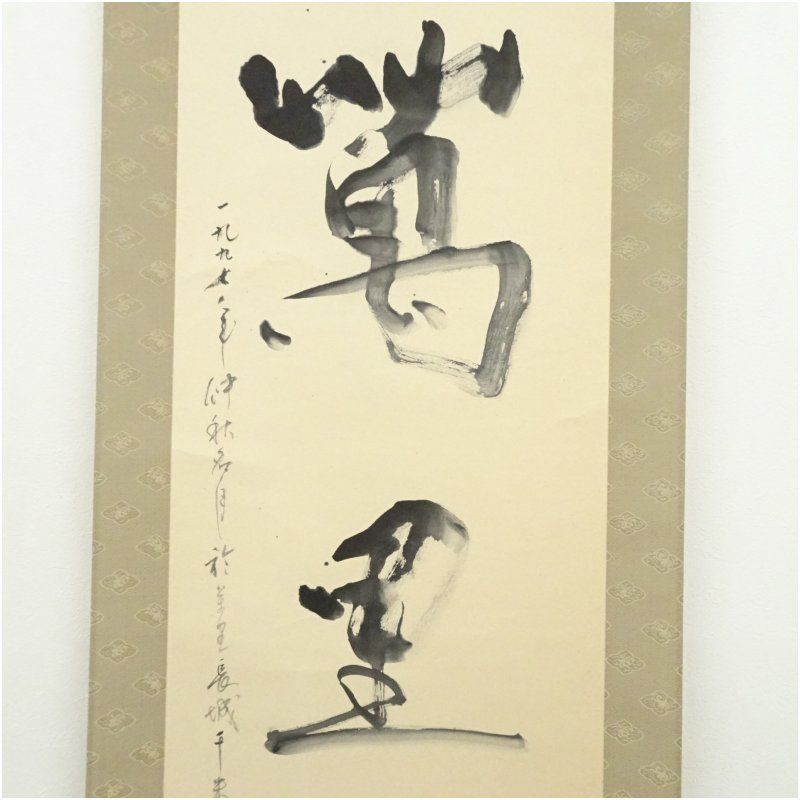 萬里
一九九七年仲秋名月於萬里長城